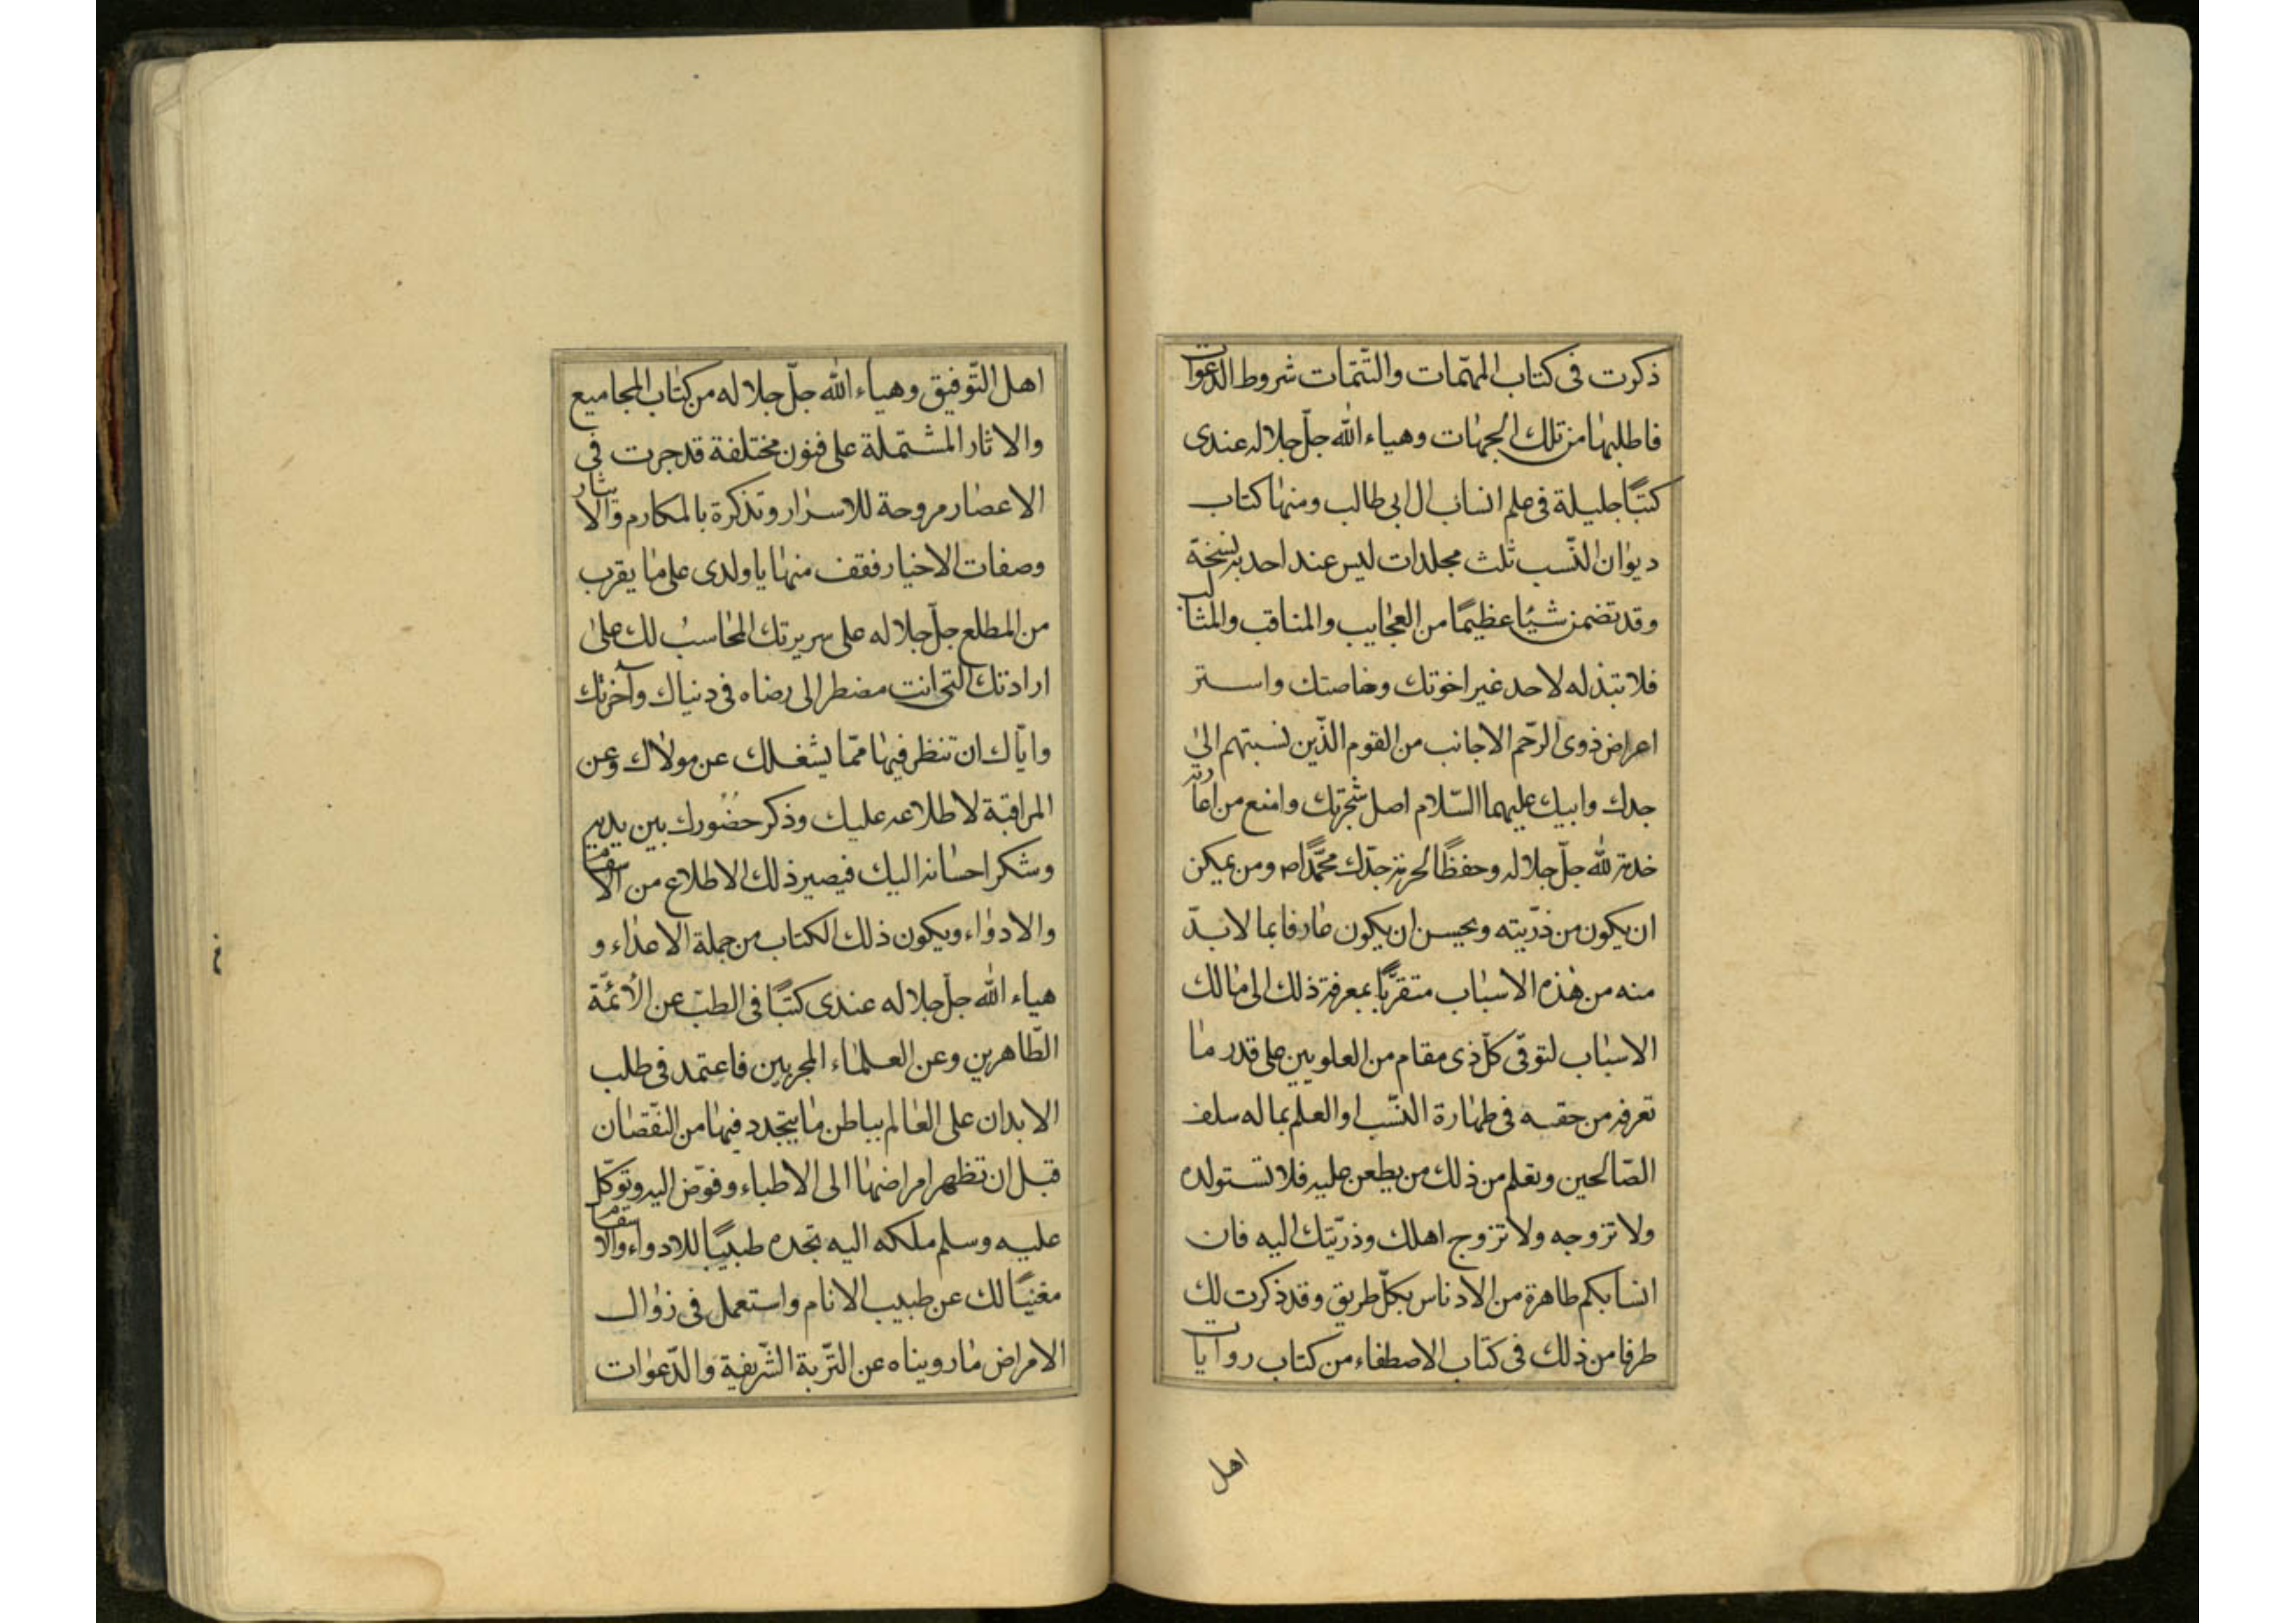 ذكرت فى كتاب المهمّات والتّتمّات شروط الدّعوات
فاطلبها من تلك الجهات وهياء الله جلّ جلاله عندى
كتبًا جليلة فى علم انساب ال ابى طالب ومنها كتاب
ديوان النّسب ثلث مجلدات ليس عند احد به نسخة
وقد تضمن شيئا عظيمًا من العجايب والمناقب والمثالب
فلا تبذله لاحد غير اخوتك وخاصتك واستر
اعراض ذوى الرّحم الاجانب من القوم الّذين نسبتهم الى
جدك وابيك عليهما السّلام اصل شجرتك وامنع من اعارته
خدمة لله جلّ جلاله وحفظًا لحرمة جدّك محمّدًا ص ومن يمكن
ان يكون من ذرّيته ويحسن ان يكون عارفا بما لابدّ
منه من هذه الاسباب متقرّبًا بمعرفة ذلك الى مالك
الاسباب لتوقى كلّ ذى مقام من العلويين على قدر ما
تعرفه من حقه فى طهارة النّسب او العلم بما له سلف
الصّالحين وتعلم من ذلك من يطعن عليه فلا تستولده
ولا تزوجه ولا تزوج اهلك وذرّيتك اليه فان
انسابكم طاهرة من الادناس بكلّ طريق وقد ذكرت لك
طرفا من ذلك فى كتاب الاصطفاء من كتاب روايات
اهل
اهل التّوفيق وهياء الله جلّ جلاله من كتاب المجاميع
والاثار المشتملة على فنون مختلفة قد جرت فى
الاعصار مروحة للاسرار وتذكرة بالمكارم والايثار
وصفات الاخيار فقف منها يا ولدى على ما يقرب
من المطلع جلّ جلاله على سريرتك المحاسب لك على
ارادتك التى انت مضطر الى رضاه فى دنياك وآخرتك
وايّاك ان تنظر فيها ممّا يشغلك عن مولاك وعن
المراقبة لاطلاعه عليك وذكر حضورك بين يديه
وشكر احسانه اليك فيصير ذلك الاطلاع من الاسقام
والادواء ويكون ذلك الكتاب من جملة الاعداء و
هياء الله جلّ جلاله عندى كتبًا فى الطبّ عن الأئمّة
الطّاهرين وعن العلماء المجربين فاعتمد فى طلب
الابدان على العالم بباطن ما يتجدد فيها من النّقصان
قبل ان تظهر امراضها الى الاطباء وفوّض اليه وتوكّل
عليه وسلم ملكه اليه تجده طبيبًا للادواء والاسقام
مغنيًا لك عن طبيب الانام واستعمل فى زوال
الامراض ما رويناه عن التّربة الشّريفة والدّعوات